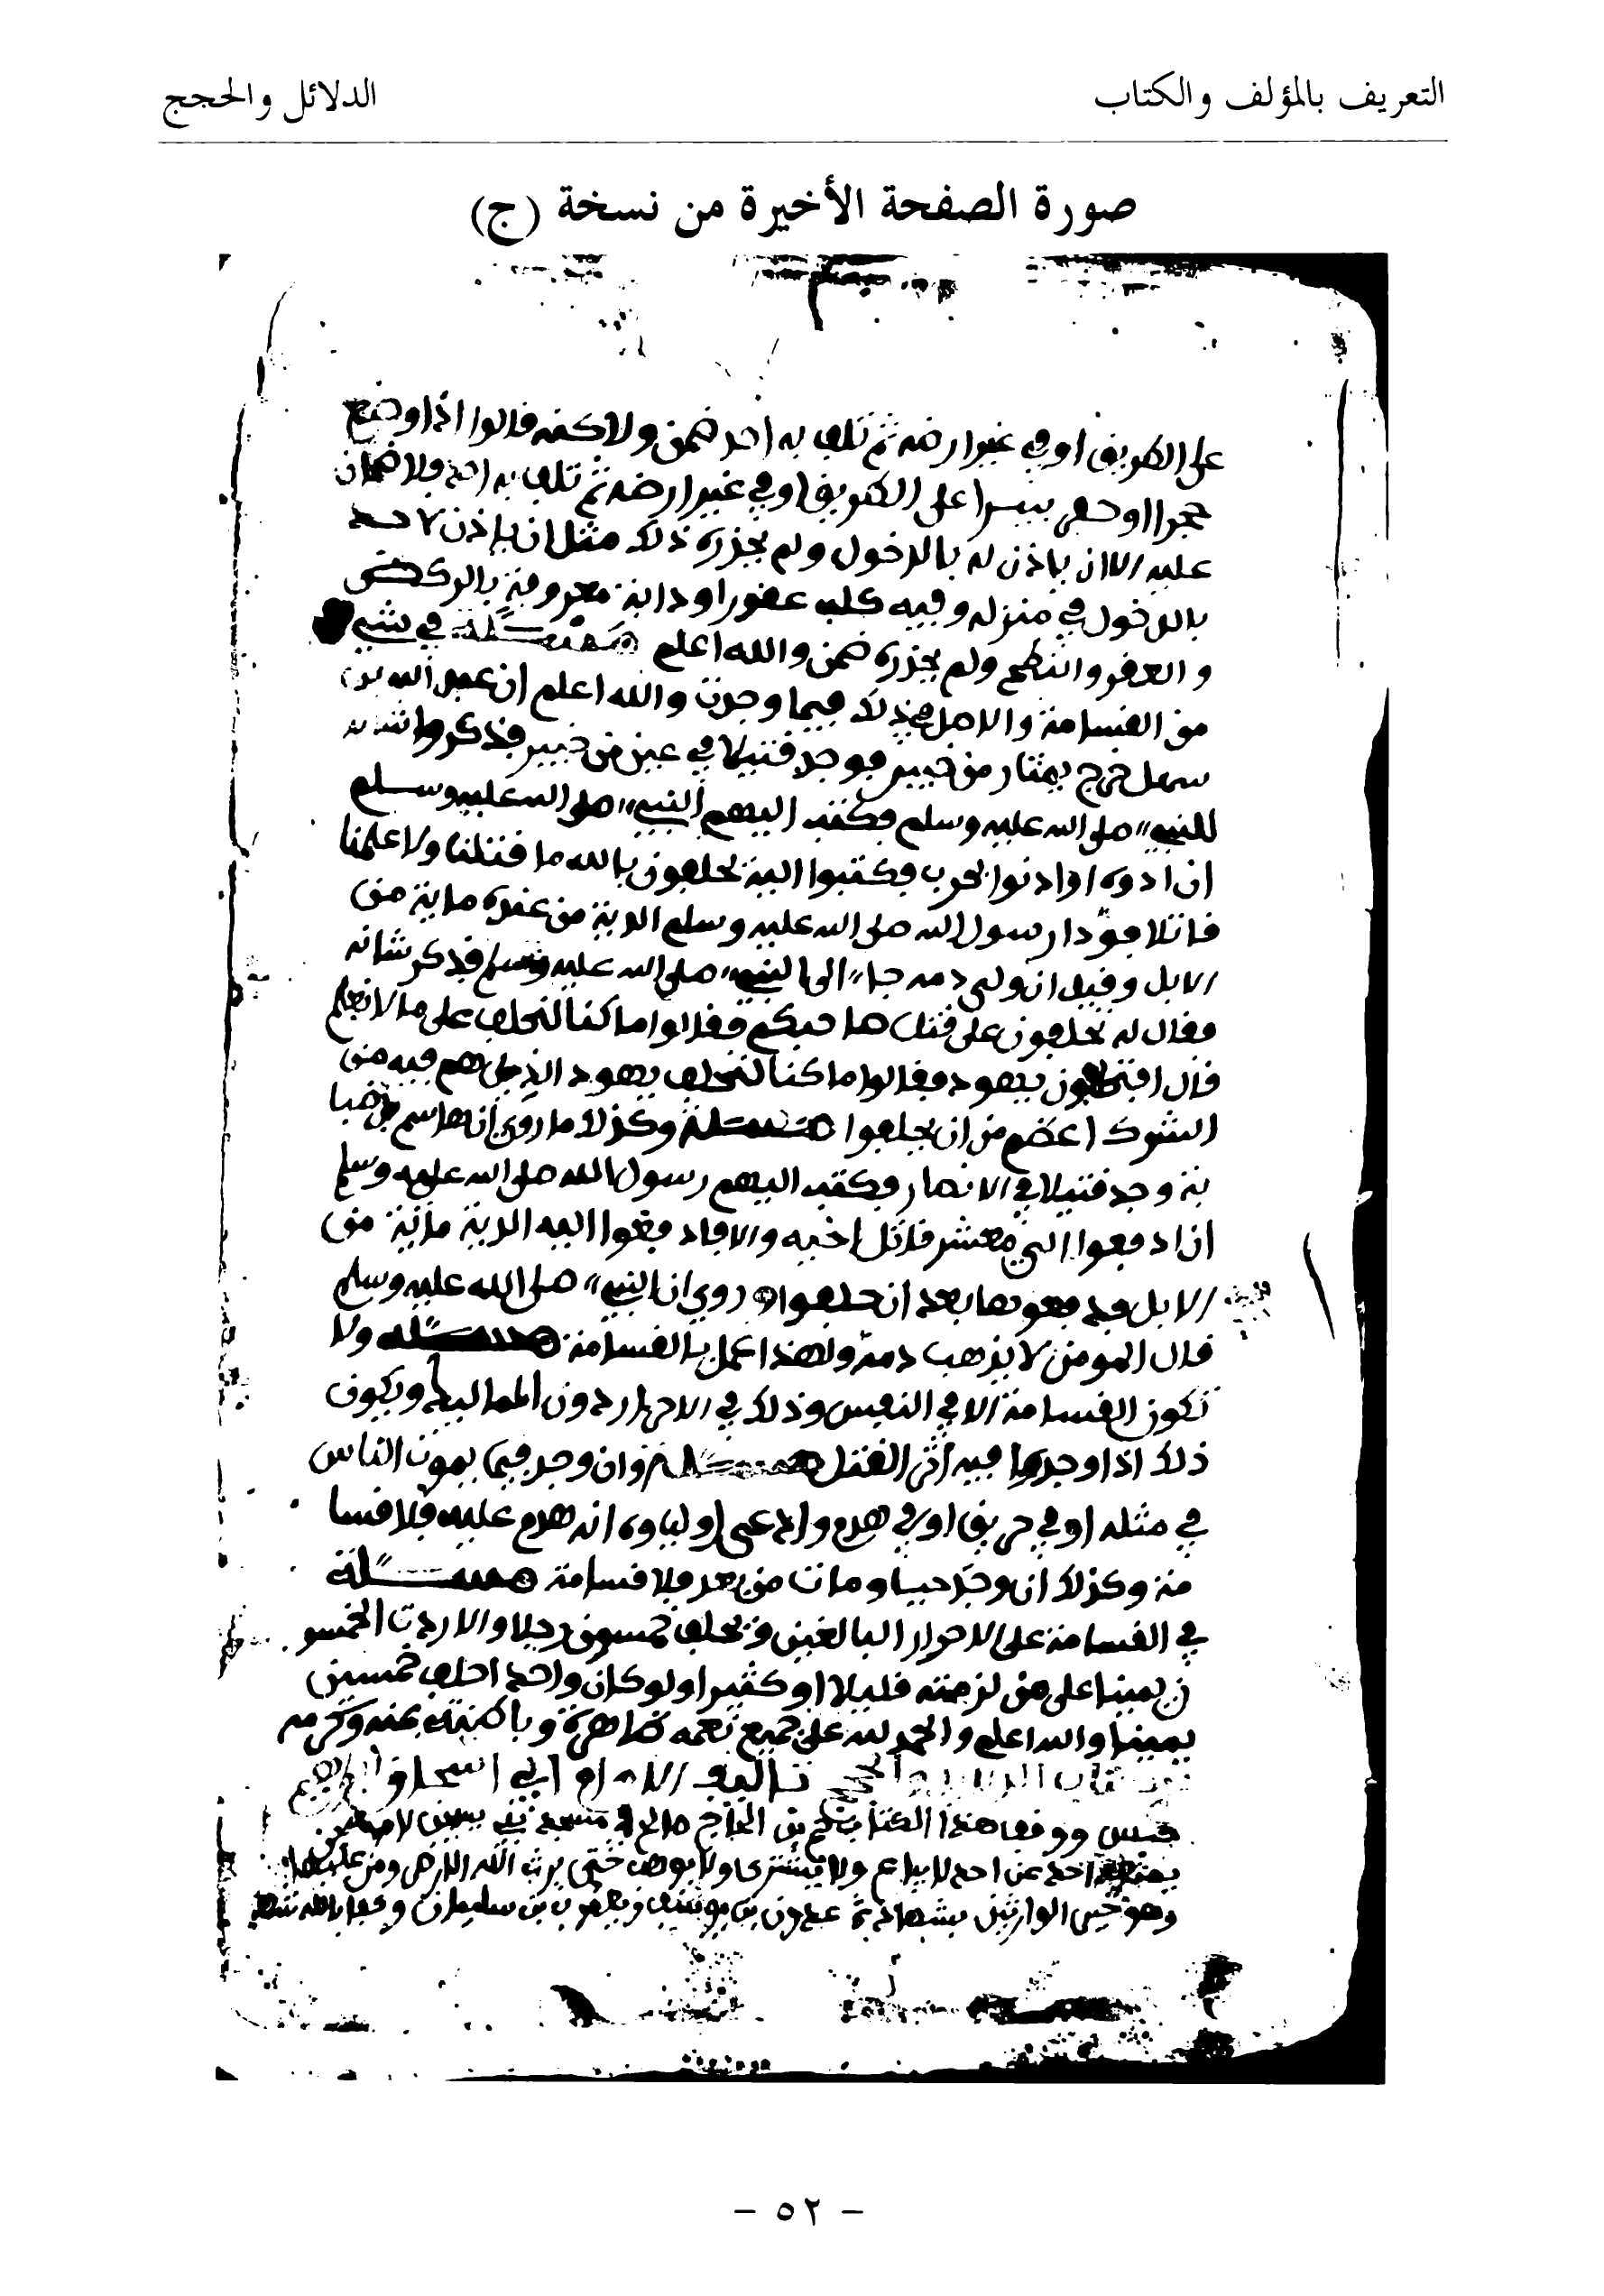 التعريف بالمؤلف والكتاب
الدلائل والحجج
صورة الصفحة الأخيرة من نسخة (ج)
على الطريق او في غير ارضه ثم تلف به احد ضمن ولاكنه قالوا اذا وضع
حجرا او حفر بيرا على الطريق او في غير ارضه ثم تلف به احد ولا ضمان
عليه الا ان ياذن له بالدخول ولم يحذره ذلك مثل ان ياذن لاحد
بالدخول في منزله وفيه كلب عقور او دابة معروفة بالركض
والعقر والنطح ولم يحذره ضمن والله اعلم مسئلة في شيء
من القسامة والاصل في ذلك فيما وجدت والله اعلم ان عبد الله بن
سهل خرج يمتار من خيبر فوجد قتيلا في عين من خيبر فذكروا شانه
للنبيء صلى الله عليه وسلم فكتب اليهم النبيء صلى الله عليه وسلم
ان ادوه او اذنوا بحرب فكتبوا اليه يحلفون بالله ما قتلنا ولا علمنا
قاتلا فودا رسول الله صلى الله عليه وسلم الدية من عنده ماية من
الابل وقيل ان ولي دمه جاء الى النبيء صلى الله عليه وسلم فذكر شانه
فقال له تحلفون على قتل صاحبكم فقالوا ما كنا لنحلف على ما لا نعلم
قال افتحلفون يهود فقالوا ما كنا لنحلف يهود الذي هم فيه من
الشرك اعظم من ان يحلفوا مسئلة وكذلك ما روي ان
وجد قتيلا في الانصار فكتب اليهم رسول الله صلى الله عليه وسلم
ان ادفعوا الي معشر قاتل اخيه والا فاد فعوا اليه الدية ماية من
الابل فدفعوها بعد ان حلفوا روي ان النبيء صلى الله عليه وسلم
قال المومن لا يذهب دمه ولهذا عمل بالقسامة مسئلة ولا
تكون القسامة الا في النفيس وذلك في الاحرار دون المماليك ويكون
ذلك اذا وجدوا فيه اثر القتل مسئلة وان وجد فيما يموت الناس
في مثله او في حريق او في هدم وادعى اولياوه انه هدم عليه فلا قسا
مة وكذلك ان وجد حيا ومات من بعد فلا قسامة مسئلة
في القسامة على الاحرار البالغين ويحلف خمسون رجلا والا ردت الخمسو
ن يمينا على من لزمته قليلا او كثيرا ولو كان واحد احلف خمسين
يمينا والله اعلم والحمد لله على جميع نعمه ظاهرة وباطنة بمنه وكرمه
تاليف الامام ابي اسحاق
حبس ووقف هذا الكتاب بن الحاج صالح في مسجد بني يسجن لا
احد عن احد لا يباع ولا يشترى ولا يوهب حتى يرث الله الارض ومن عليها
وهو خير الوارثين بشهادة عدون بن يوسف ويعقوب بن سليمان وكفا بالله شهيد
- ٥٢ -